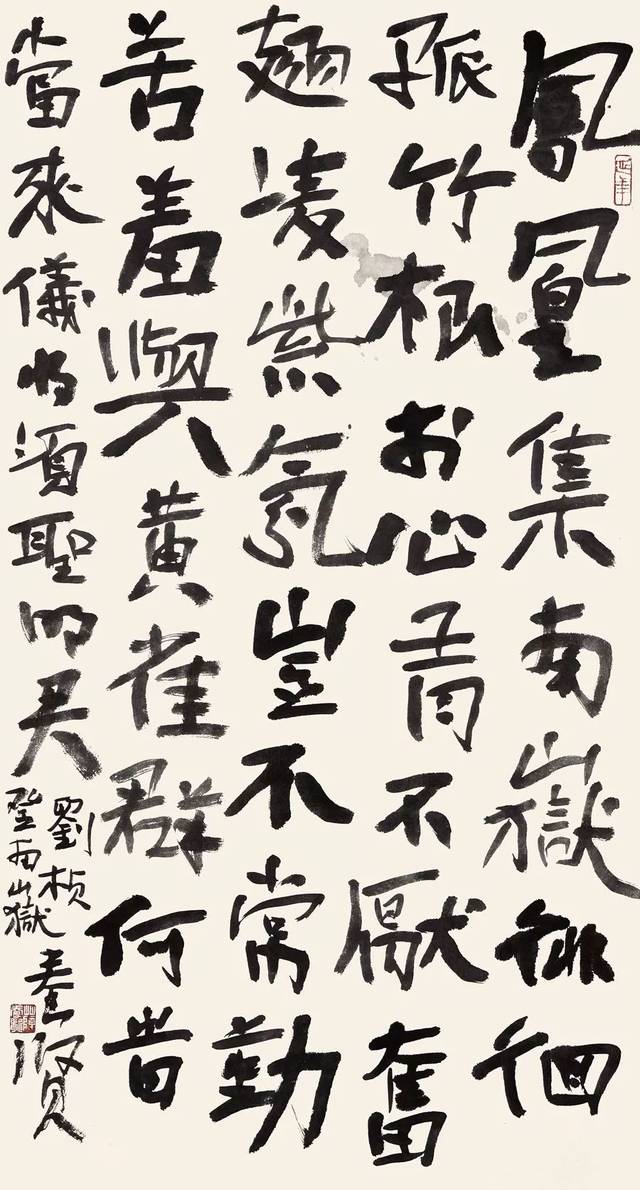 鳳凰集南嶽徘徊
孤竹根於心有不厭奮
翅凌紫氛豈不常勤
苦羞與黃雀群何旹
當來儀將須聖明君
劉楨
南嶽